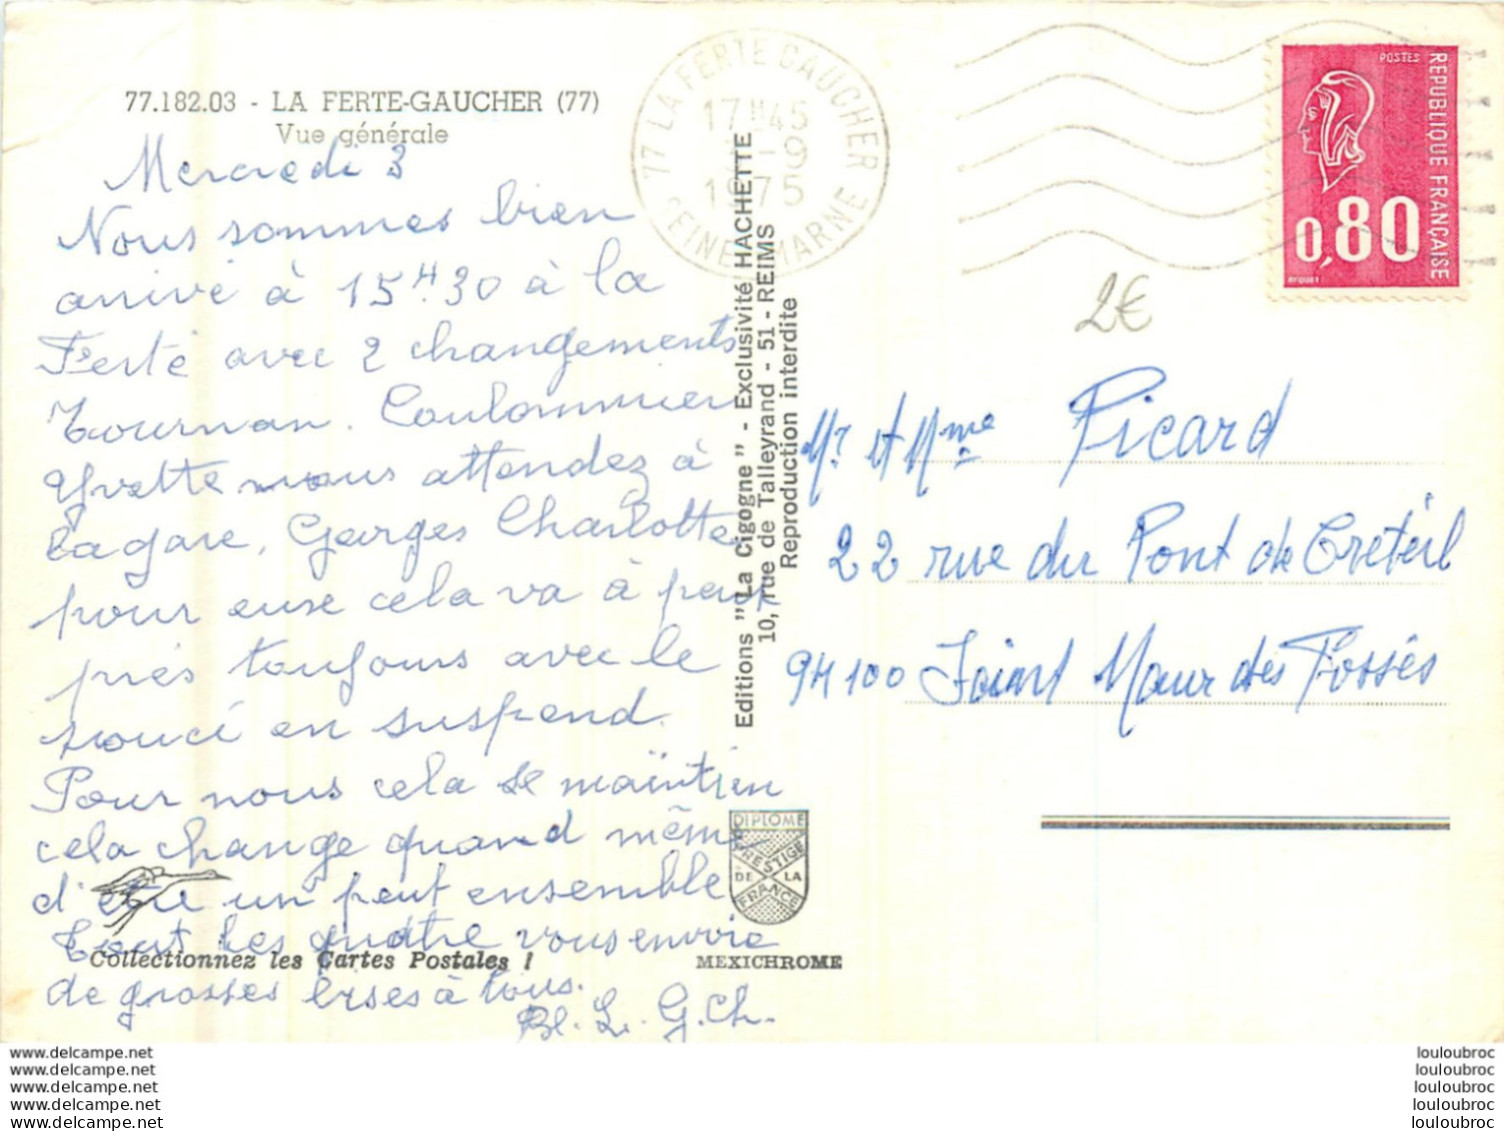 77.182.03 - LA FERTE-GAUCHER (77)
Vue générale
Mercredi 3
Nous sommes bien
arrivé à 15H30 à la
Ferté avec 2 changements
Tournan. Coulommiers
Yvette nous attendez à
la gare, Georges Charlotte
pour euse cela va à peux
près toujours avec le
soucé en suspend.
Pour nous cela se maintien
cela change quand même
d'être un peut ensemble
Tout les quatre vous envoie
de grosses bises à tous.
Bl. L. G. Ch.
Collectionnez les Cartes Postales !
Editions "La Cigogne" - Exclusivité HACHETTE
10, rue de Talleyrand - 51 - REIMS
Reproduction interdite
DIPLOME
PRESTIGE
DE LA
FRANCE
MEXICHROME
77 LA FERTE GAUCHER
17H45
-9
1975
SEINE MARNE
POSTES
REPUBLIQUE FRANÇAISE
0,80
2€
Mr et Mme Picard
22 rue du Pont de Créteil
94100 Saint Maur des Fossés
www.delcampe.net
www.delcampe.net
www.delcampe.net
www.delcampe.net
www.delcampe.net
louloubroc
louloubroc
louloubroc
louloubroc
louloubroc